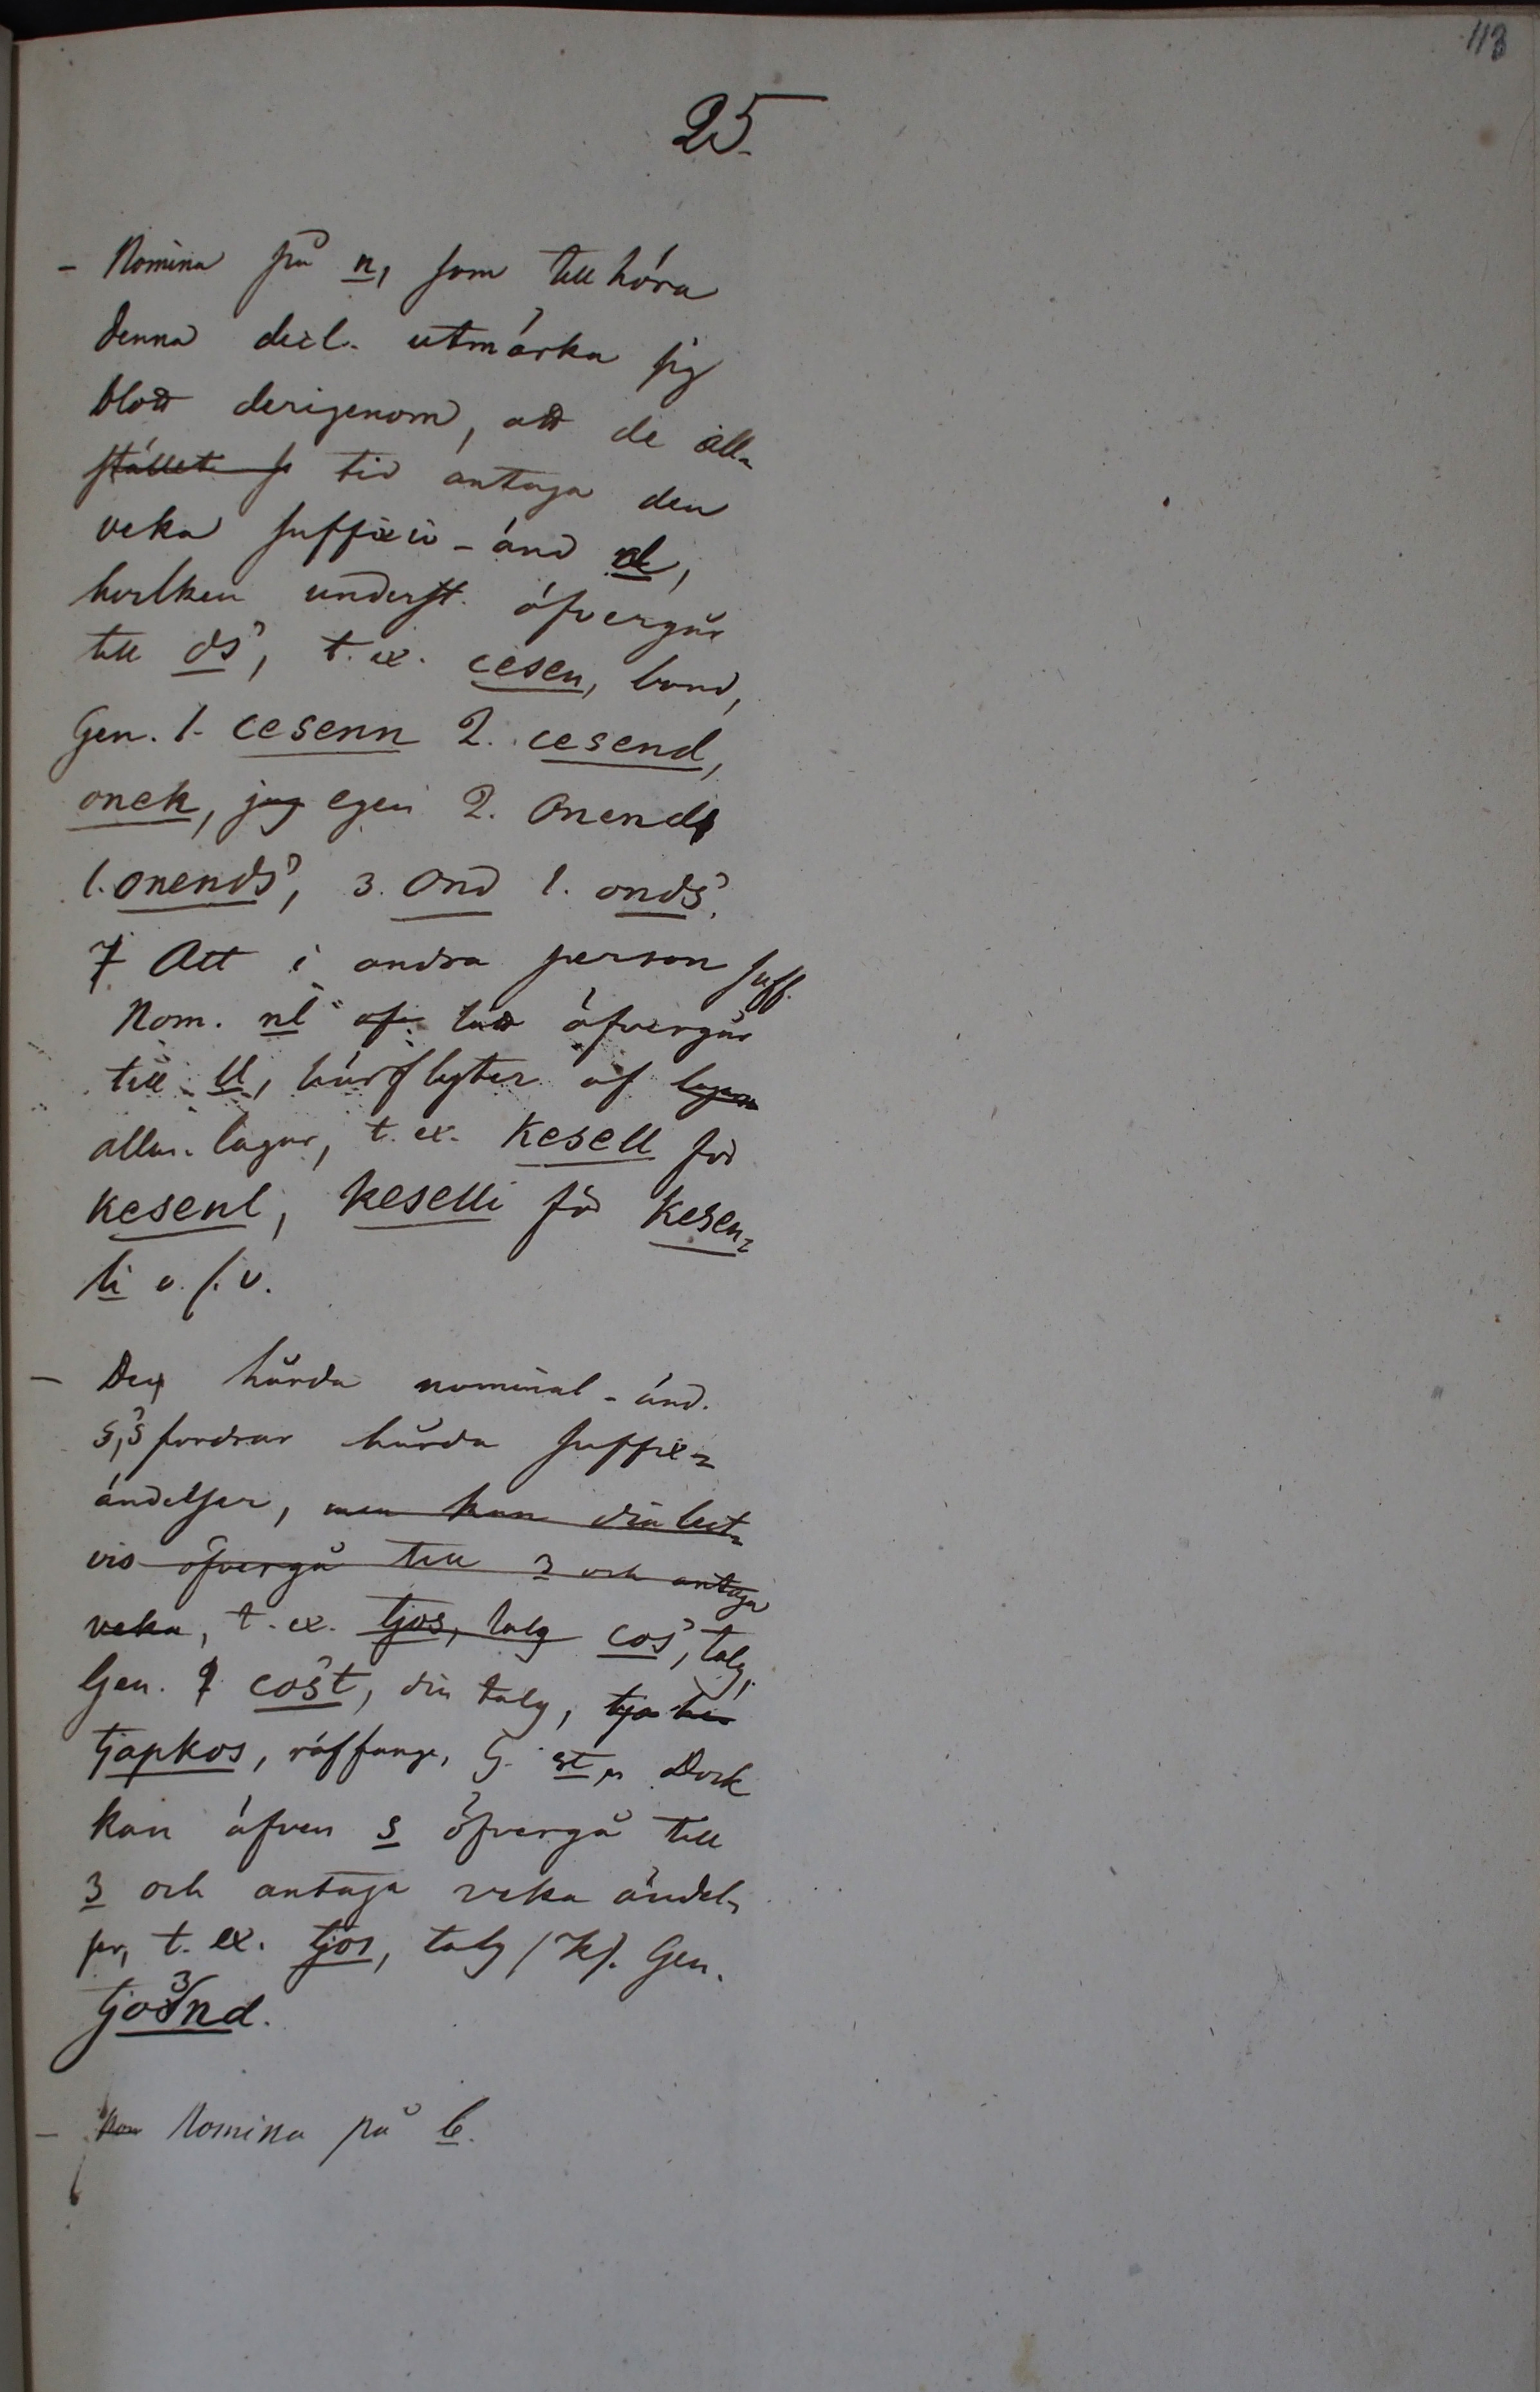 113
25.
- Nomina på n, som tillhöra
denna decl. utmärka sig
blott derigenom, att de all-
stället s tid antaga den
veka suffix-änd
hvilken underst. öfvergår
till dś, t. ex. cesen, band,
Gen. 1. cesenn 2. cesend,
onek, jag egen 2. Onend
1. onendś, 3. Ond 1. ondś.
7 Att i andra person suff.
Nom. nl af lätt öfvergår
till ll, härflyter af lagen
allm. lagar, t. ex. Kesell för
kesenl, keselli för kesen-
li o. s. v.
- Den hårda nominal-änd.
s, ś fordrar hårda suffix-
ändelser, men kan dialect-
vis öfvergå till з och antaga
veka, t. ex. tjos, talg coś, talg,
Gen. 2 cośt, din talg, tja
tjapkos, räffånge, G. st,, Dock
kan äfven s öfvergå till
з och antaga veka ändel-
ser, t. ex. tjos, talg (K). Gen.
tjoзnd.
- Nom Nomina på b.